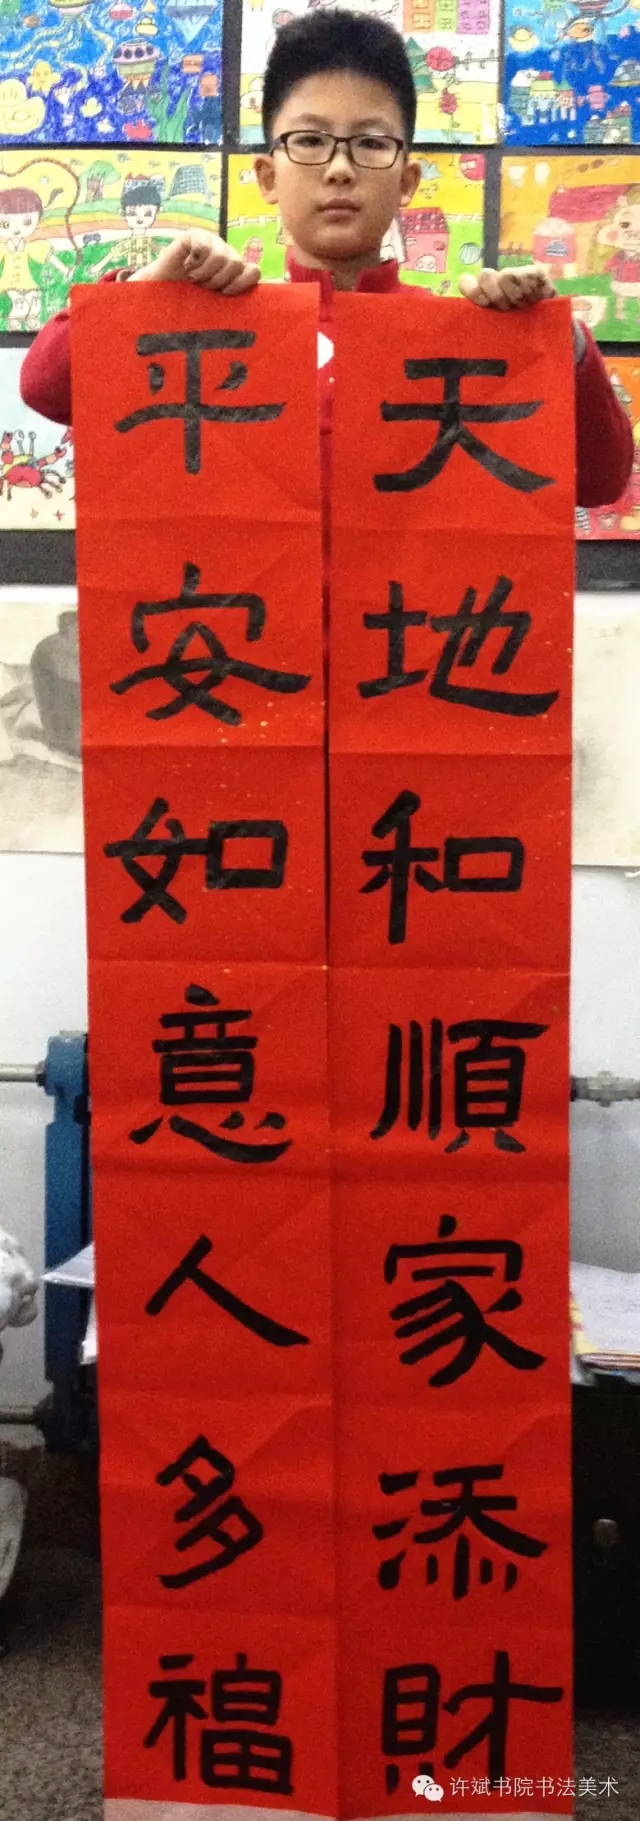 天地和順家添財
平安如意人多福
许斌书院书法美术